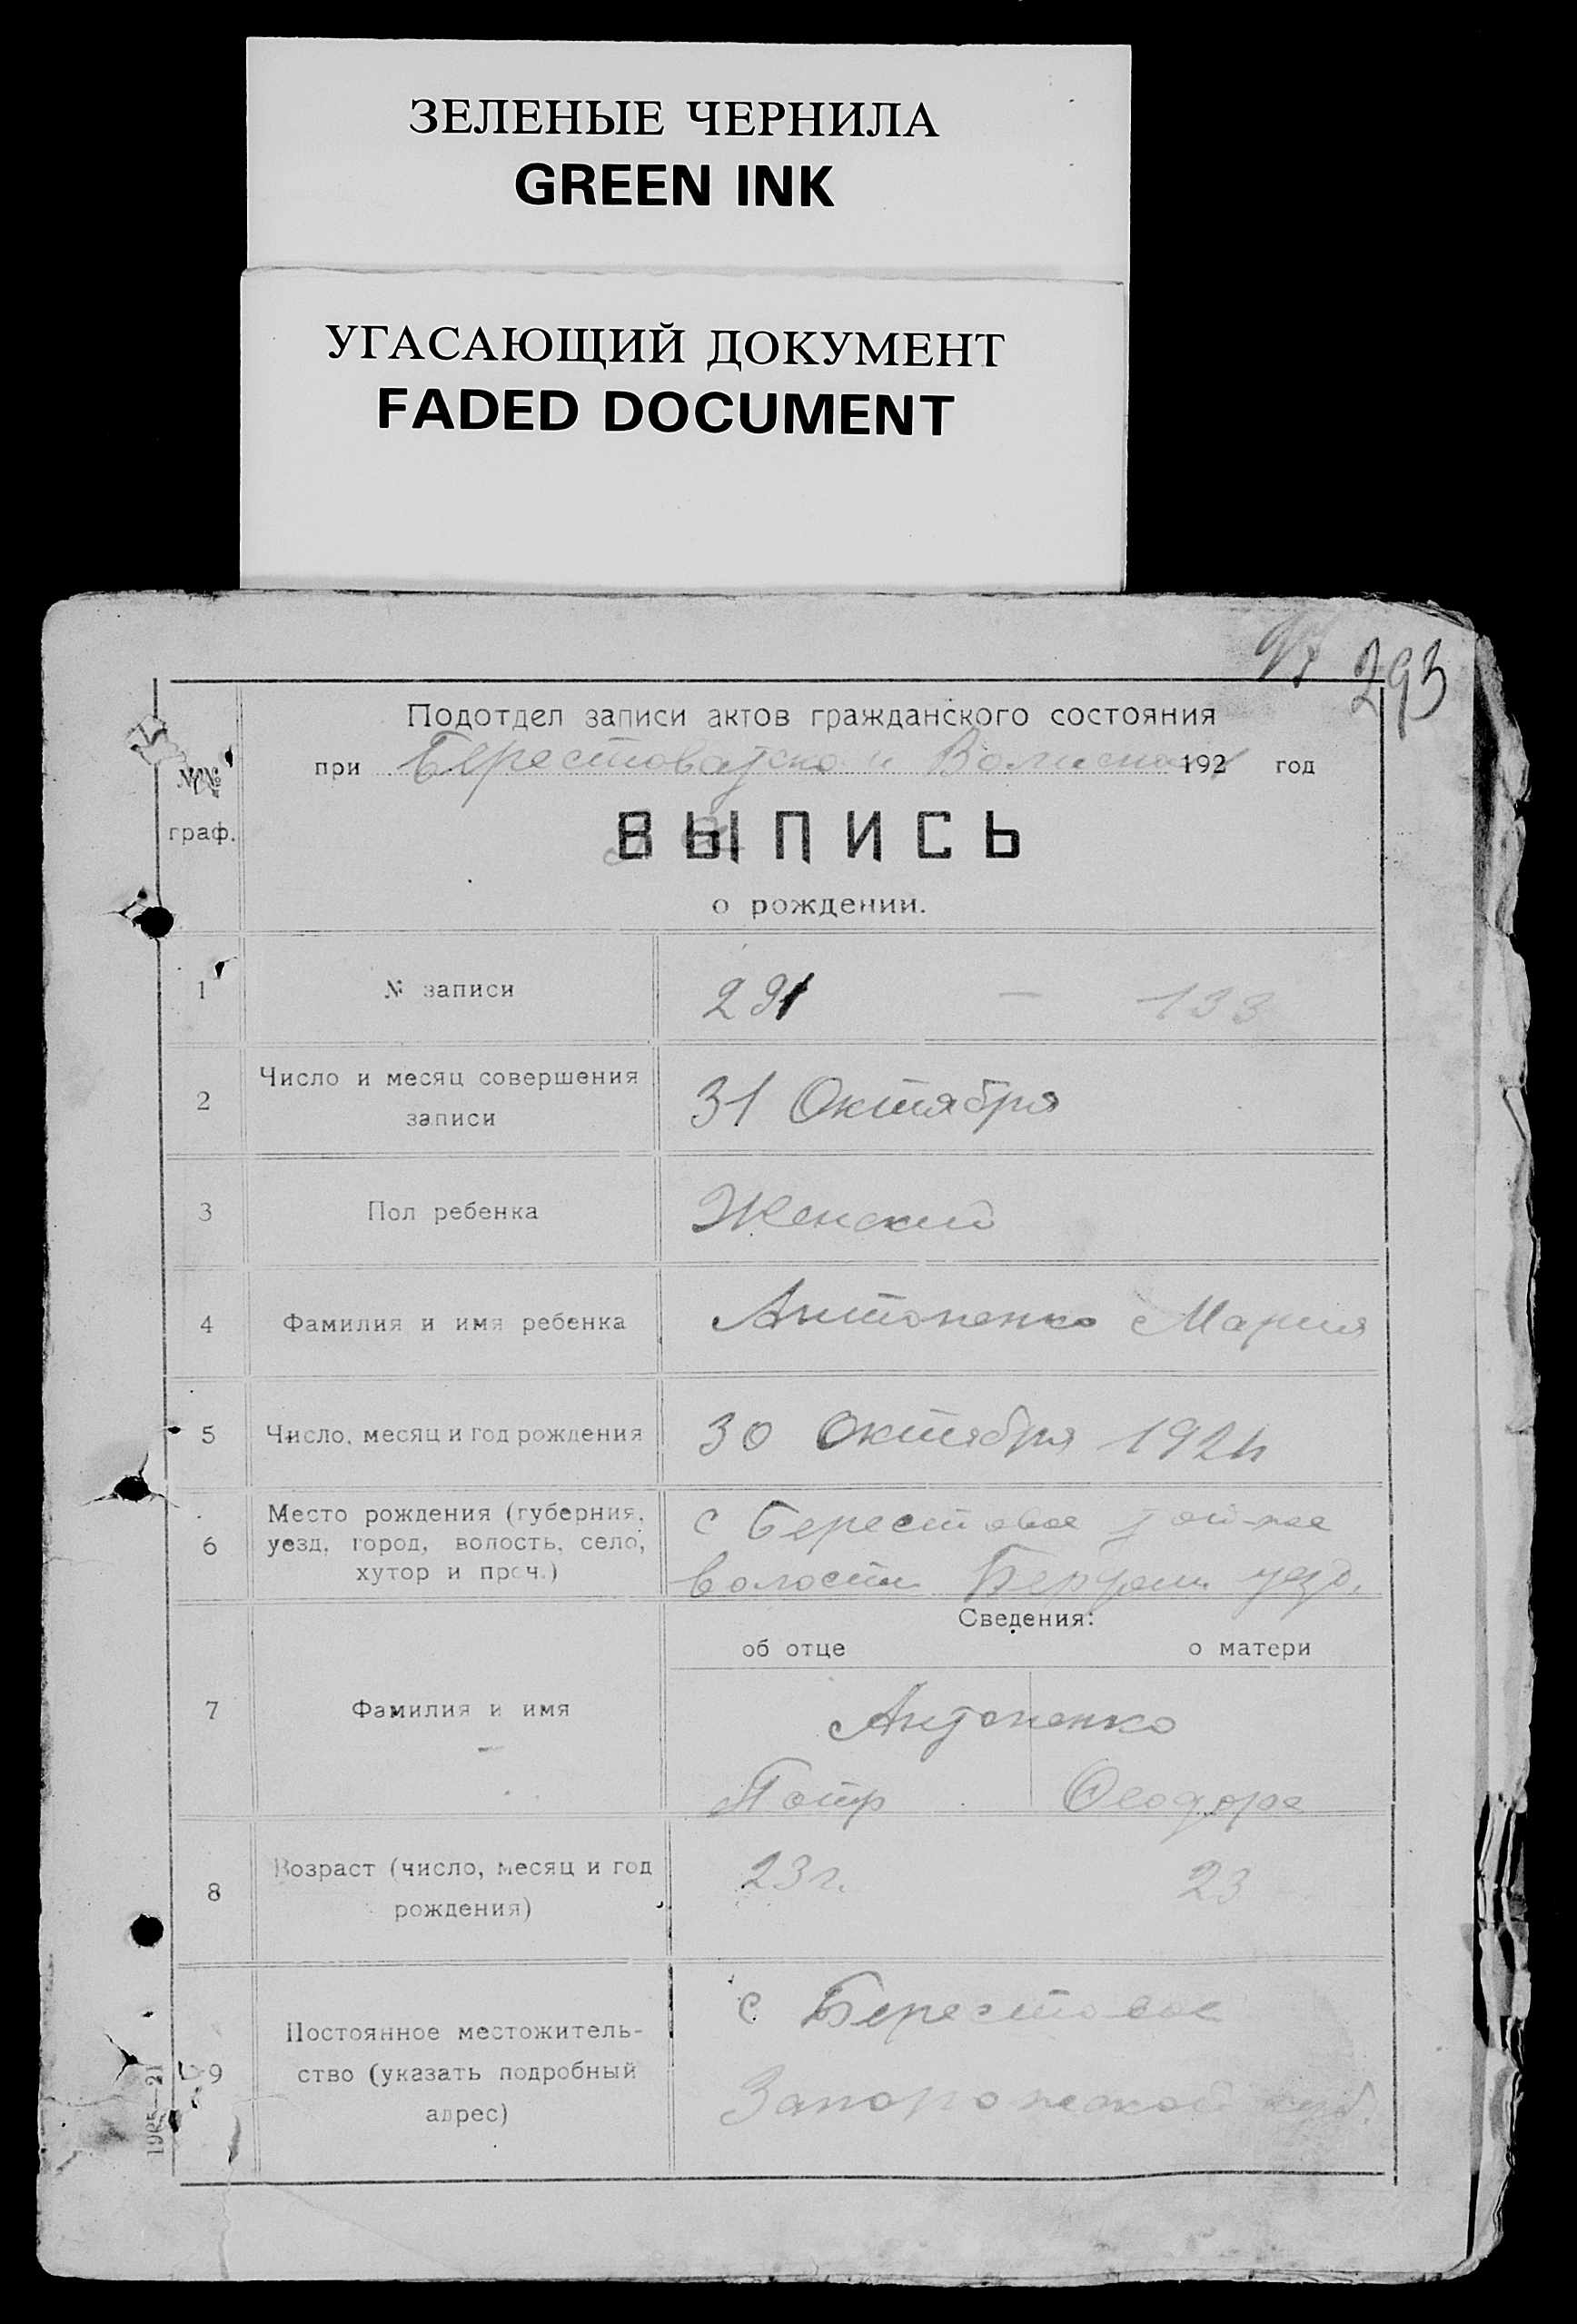 ЗЕЛЕНЫЕ ЧЕРНИЛА
GREEN INK
УГАСАЮЩИЙ ДОКУМЕНТ
FADED DOCUMENT
293
Подотдел записи актов гражданского состояния
при 192 год
№№
граф.
ВЫПИСЬ
о рождении.
1 № записи 291 — 133
2 Число и месяц совершения
записи
31 Октября
3 Пол ребенка Женский
4 Фамилия и имя ребенка Антоненко Мария
5 Число, месяц и год рождения 30 Октября
6 Место рождения (губерния,
уезд, город, волость, село,
хутор и проч.)
с Берестовое
волости уезд.
Сведения:
об отце о матери
7 Фамилия и имя
Антоненко
Петр Феодора
8 Возраст (число, месяц и год
рождения)
23 г. 23
9 Постоянное местожитель-
ство (указать подробный
адрес)
с Берестовое
Запорожской губ.
1965—21